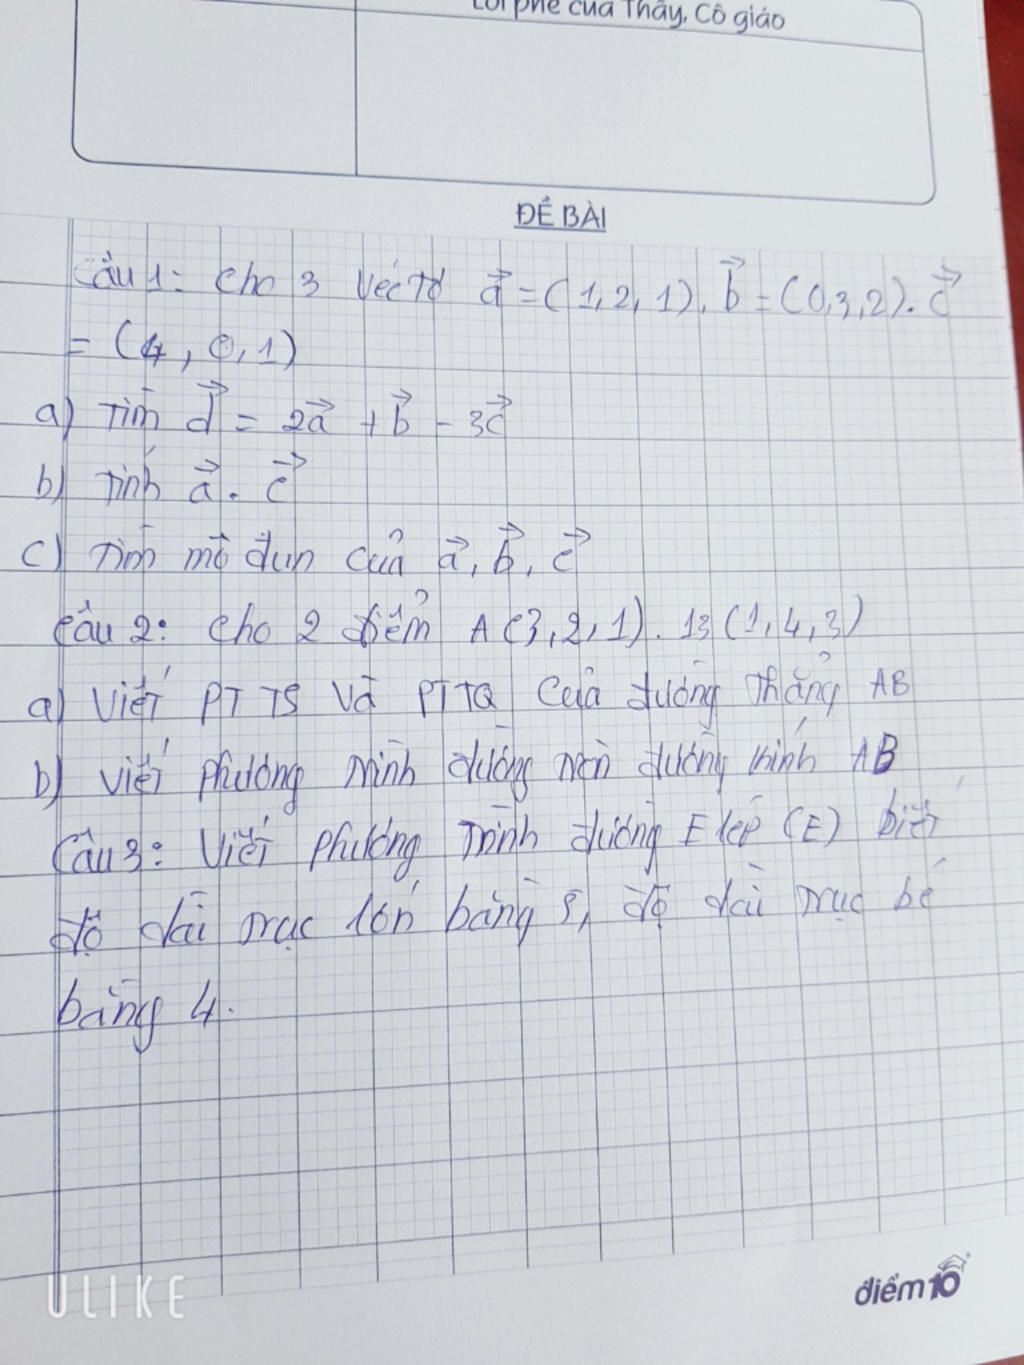 Lời phê của Thầy, Cô giáo
ĐỀ BÀI
Câu 1: Cho 3 véc tơ a⃗ = (1,2,1), b⃗ = (0,3,2). c⃗
= (4,0,1)
a) Tìm d⃗ = 2a⃗ + b⃗ - 3c⃗
b) Tính a⃗ . c⃗
c) Tìm mô đun của a⃗, b⃗, c⃗
Câu 2: Cho 2 điểm A(3,2,1). B(1,4,3)
a) Viết PTTS và PTTQ của đường thẳng AB
b) Viết phương trình đường tròn đường kính AB
Câu 3: Viết phương trình đường Elep (E) biết
độ dài trục lớn bằng , độ dài trục bé
bằng 4.
điểm10
ULIKE